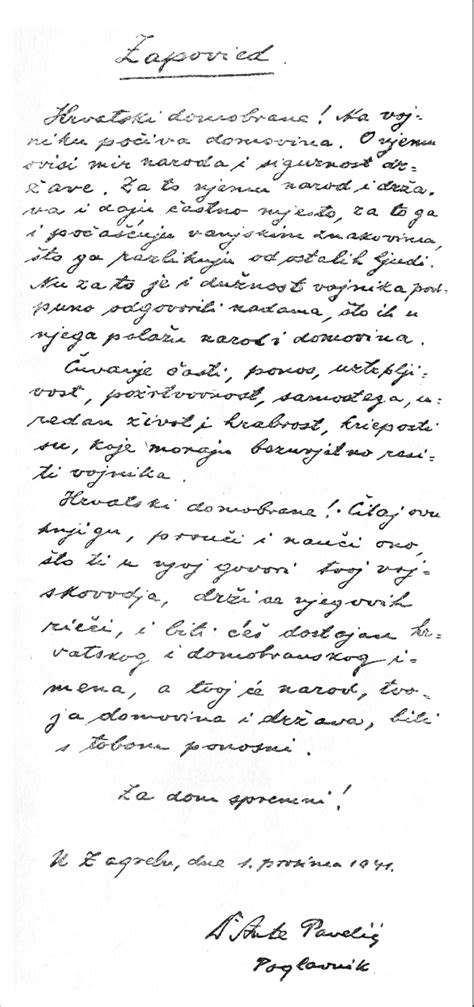 Zapovied.
Hrvatski domobrane! Na voj-
niku počiva domovina. O njemu
ovisi mir naroda i sigurnost dr-
žave. Za to njemu narod i drža-
va i daju častno mjesto, za to ga
i počašćuju vanjskim znakovima,
što ga razlikuju od ostalih ljudi.
Nu za to je i dužnost vojnika pot-
puno odgovoriti nadama, što ih u
njega polažu narod i domovina.
Čuvanje časti, ponos, ustplji-
vost, požrtvovnost, samostega, u-
redan život i hrabrost, krieposti
su, koje moraju bezuvjetno resi-
ti vojnika.
Hrvatski domobrane! Čitaj ovu
knjigu, prouči i nauči ono,
što ti u njoj govori tvoj voj-
skovodja, drži se njegovih
rieči, i biti ćeš dostojan hr-
vatskog i domobranskog i-
mena, a tvoj će narod, tvo-
ja domovina i država, biti
s tobom ponosni.
Za dom spremni!
U Zagrebu, dne 1. prosinca 1941.
Dr Ante Pavelić
Poglavnik